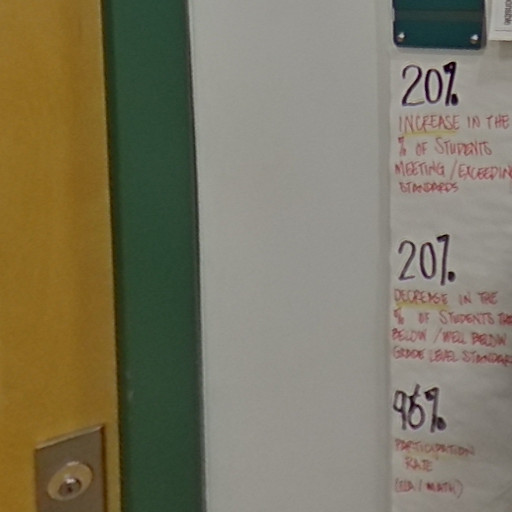 20%
INCREASE IN THE
% OF STUDENTS
MEETING / EXCEEDIN
STANDARDS
20%
DECREASE IN THE
% OF STUDENTS
BELOW / WELL BELOW
GRADE LEVEL STANDAR
96%
PARTICIPATION
RATE
(ELA / MATH)